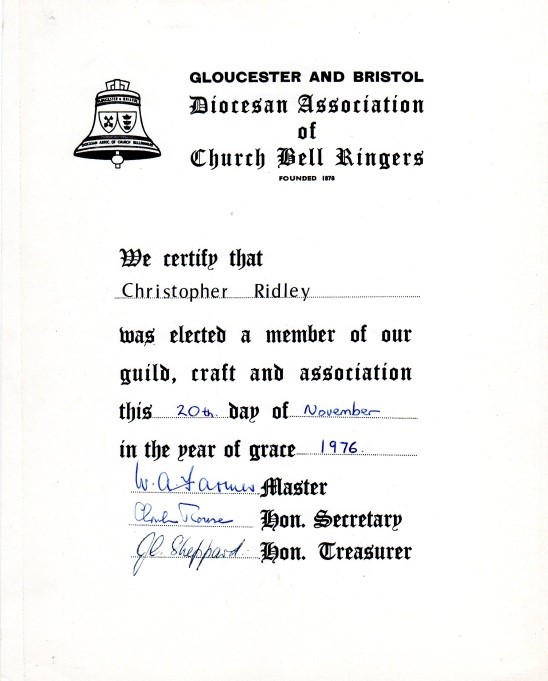 GLOUCESTER AND BRISTOL
Diocesan Association
of
Church Bell Ringers
FOUNDED 1878
We certify that
Christopher Ridley
was elected a member of our
guild, craft and association
this 20th day of November
in the year of grace 1976
W. A. Farmer Master
Hon. Secretary
Sheppard Hon. Treasurer